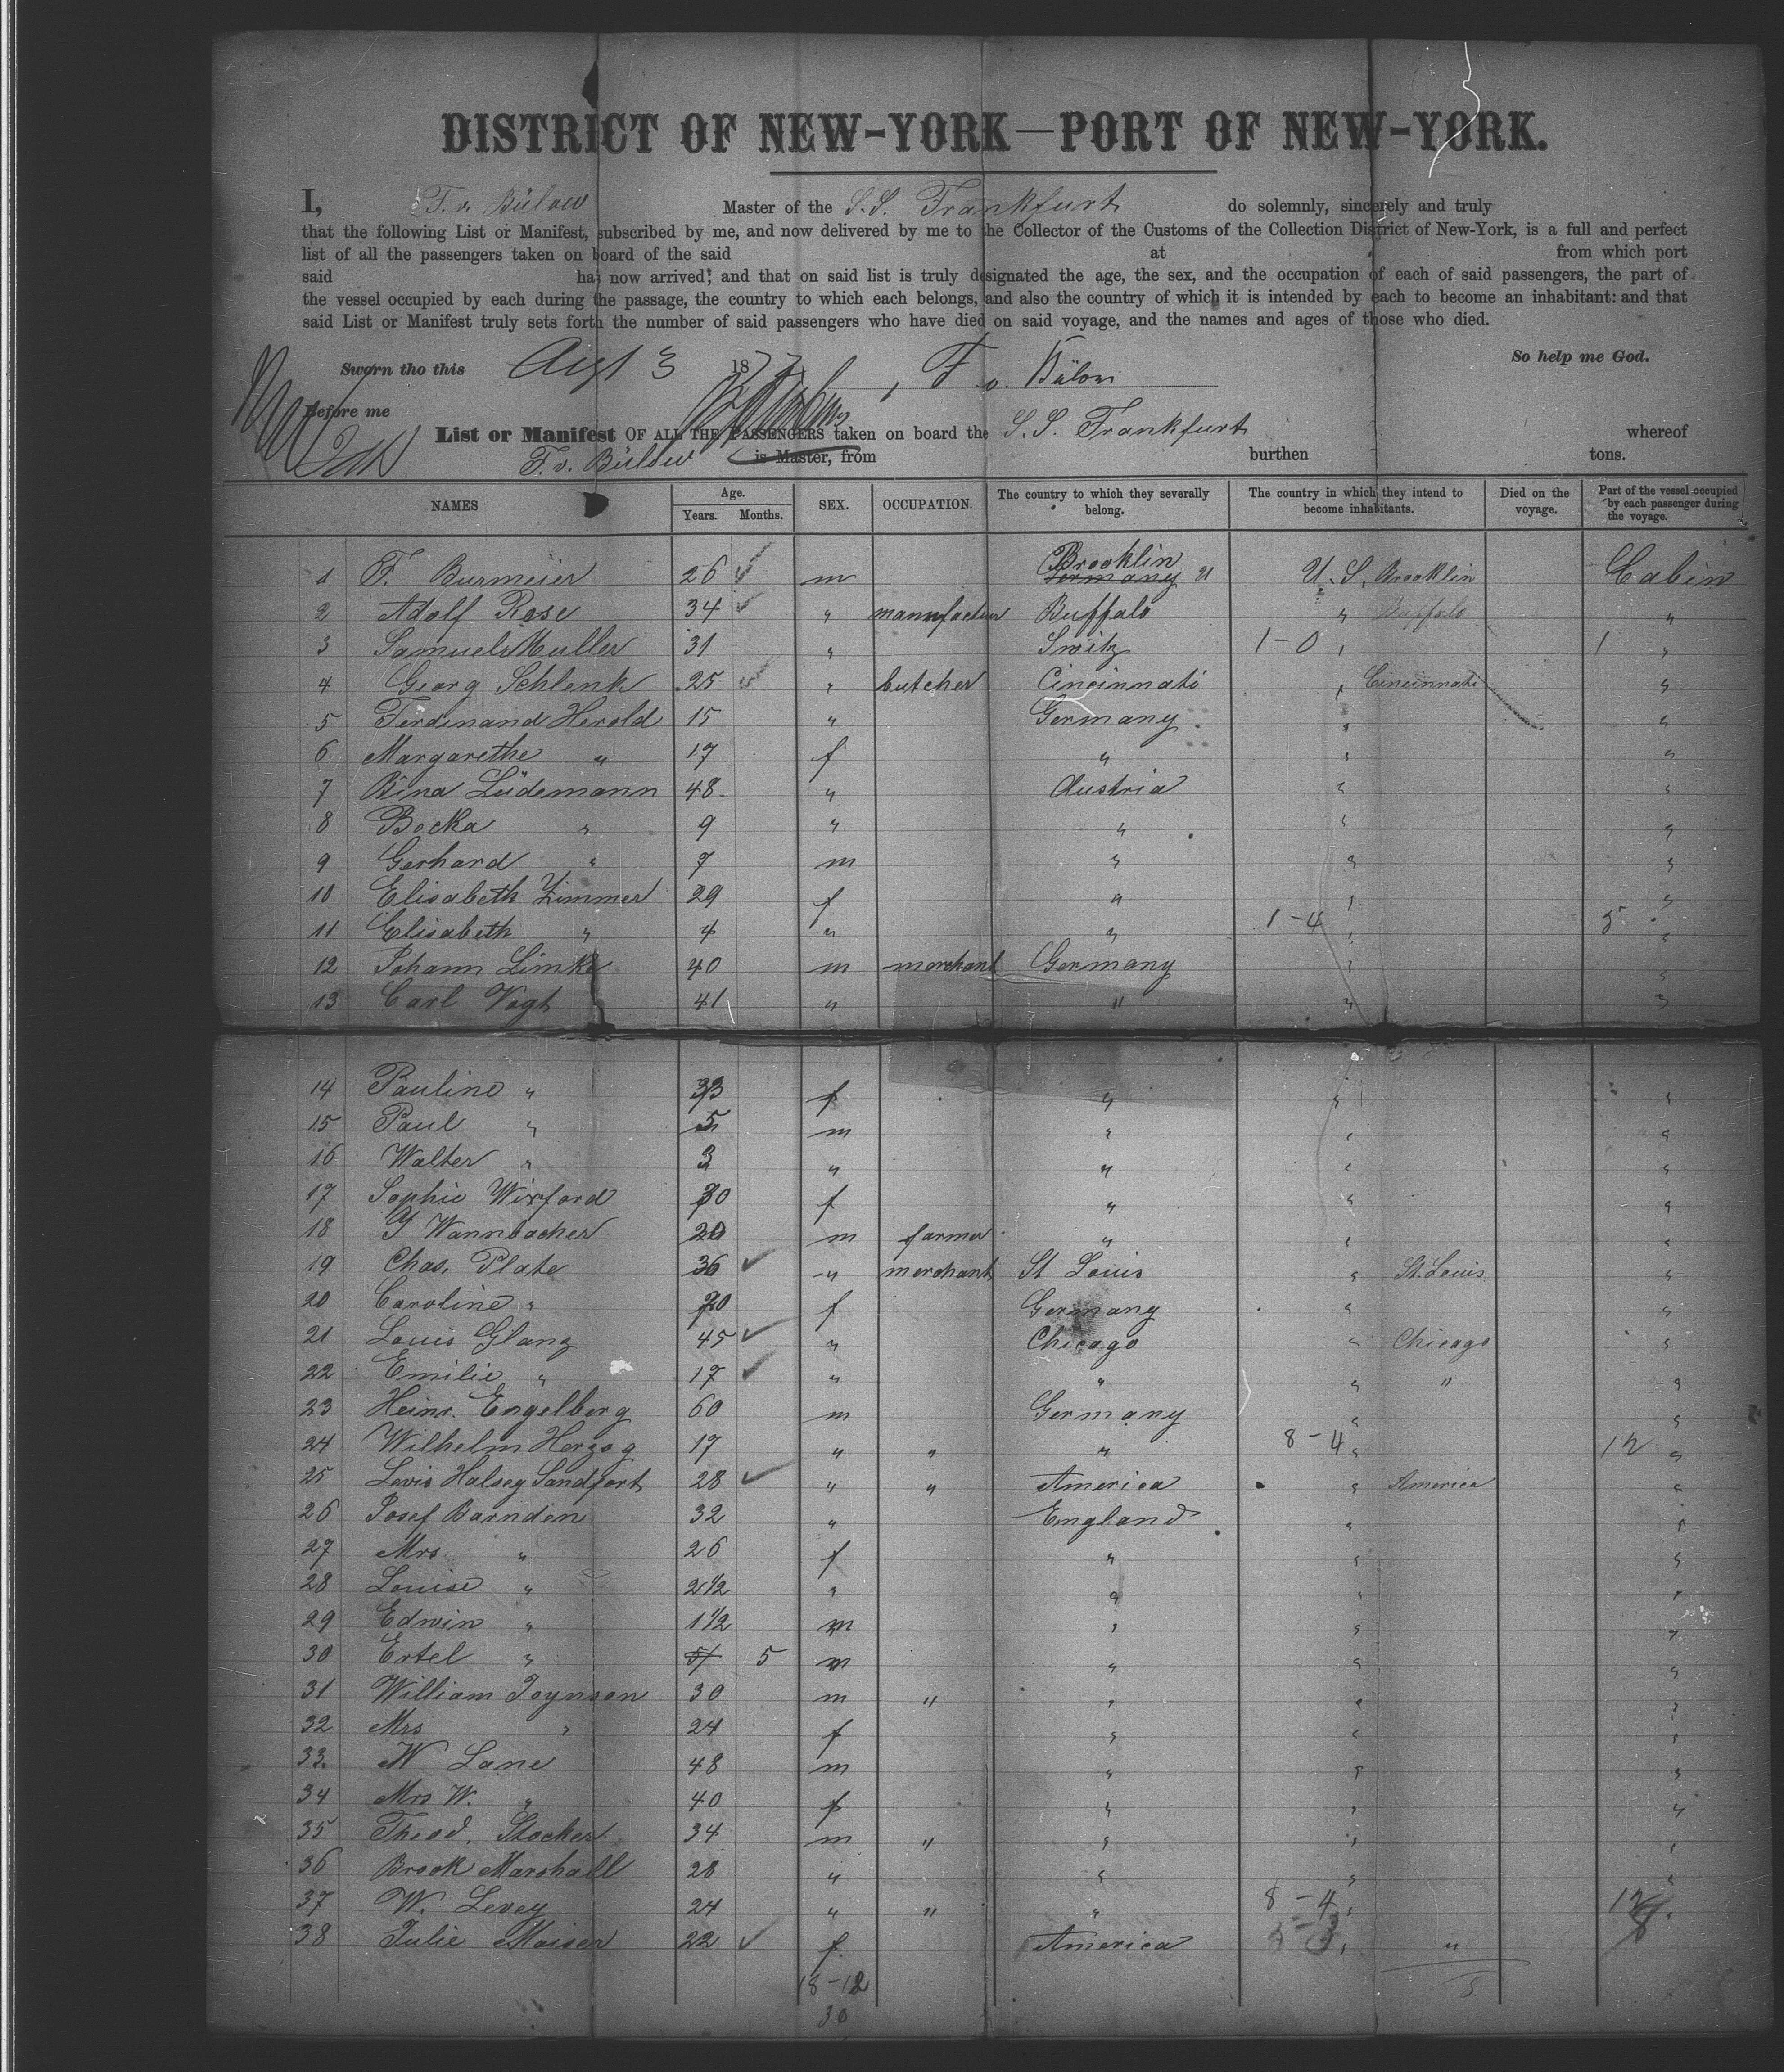 DISTRICT OF NEW-YORK—PORT OF NEW-YORK.
I, F. v. Bülow Master of the S.S. Frankfurt do solemnly, sincerely and truly
that the following List or Manifest, subscribed by me, and now delivered by me to the Collector of the Customs of the Collection District of New-York, is a full and perfect
list of all the passengers taken on board of the said at from which port
said has now arrived; and that on said list is truly designated the age, the sex, and the occupation of each of said passengers, the part of
the vessel occupied by each during the passage, the country to which each belongs, and also the country of which it is intended by each to become an inhabitant: and that
said List or Manifest truly sets forth the number of said passengers who have died on said voyage, and the names and ages of those who died.
So help me God.
Sworn tho this Augt 3 1877 F v. Bülow
Before me
List or Manifest OF ALL THE PASSENGERS taken on board the S.S. Frankfurt whereof
F. v. Bülow is Master, from burthen tons.
NAMES Age. Years. Months. SEX. OCCUPATION. The country to which they severally belong. The country in which they intend to become inhabitants. Died on the voyage. Part of the vessel occupied by each passenger during the voyage.
1 F. Burmeier 26 m Brooklin Germany U. S. Brooklin Cabin
2 Adolf Rose 34 " Buffalo " Buffalo "
3 Samuel Muller 31 " Switz 1-0 " 1 "
4 Georg Schlenk 25 " butcher Cincinnati " Cincinnati "
5 Ferdinand Herold 15 " Germany " "
6 Margarethe " 17 f " " "
7 Bina Lüdemann 48 " Austria " "
8 Becka " 9 " " " "
9 Gerhard " 7 m " " "
10 Elisabeth Zimmer 29 f " " "
11 Elisabeth " 4 " " 1-4 " 5 "
12 Johann Limke 40 m merchant Germany " "
13 Carl Vogt 41 " " " "
14 Pauline " 33 f " " "
15 Paul " 5 m " " "
16 Walter " 3 " " " "
17 Sophie Wixford 30 f " " "
18 Wannbacher 20 m farmer " " "
19 Chas. Plate 36 " merchant St Louis " St. Louis "
20 Caroline " 20 f Germany " "
21 Louis Glanz 45 " Chicago " Chicago "
22 Emilie " 17 " " " " "
23 Heinr. Engelberg 60 m Germany " "
24 Wilhelm Herzog 17 " " " 8-4 " 12 "
25 Lewis Halsey Sandfort 28 " " America " America "
26 Josef Barnden 32 " England " "
27 Mrs " 26 f " " "
28 Louise " 2 1/2 " " " "
29 Edwin " 1 1/2 m " " "
30 Ertel " 5 m " " "
31 William Joynson 30 m " " " "
32 Mrs " 24 f " " "
33. W Lane 48 m " " "
34 Mrs W. " 40 f " " "
35 Theod. Stocker 34 m " " " "
36 Brook Marshall 28 " " " "
37 W. Levey 24 " " " 8-4 " 12 "
38 Julie Maiser 22 f America " "
18-12
30
5